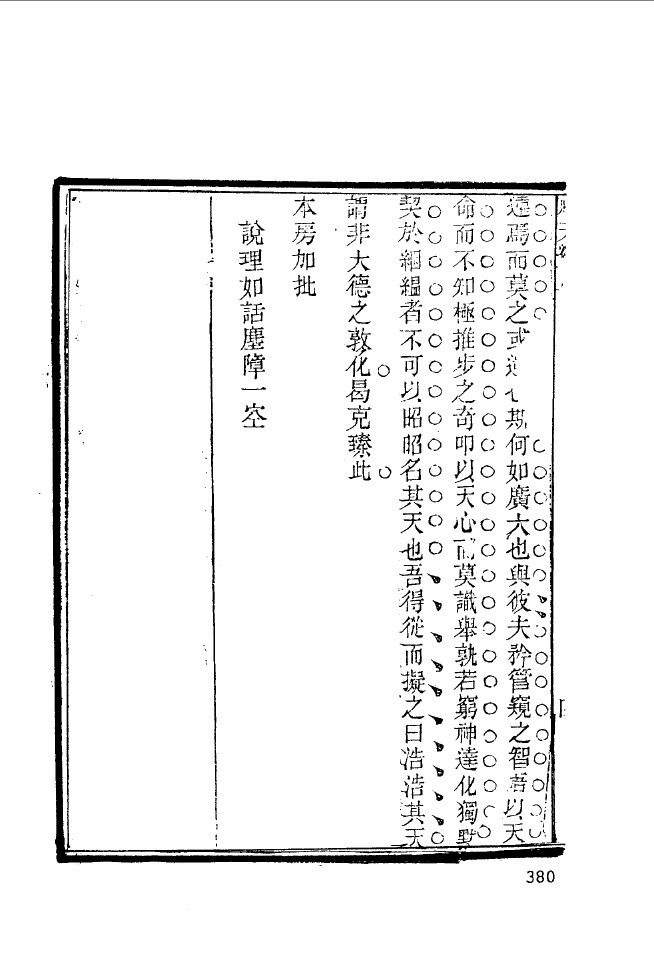 違焉而莫之或違也斯何如廣大也與彼夫矜管窺之智者以天
命而不知極推步之奇叩以天心而莫識舉孰若窮神達化獨默
契於絪縕者不可以昭昭名其天也吾得從而擬之曰浩浩其天
謂非大德之敦化曷克臻此
本房加批
說理如話塵障一空
380